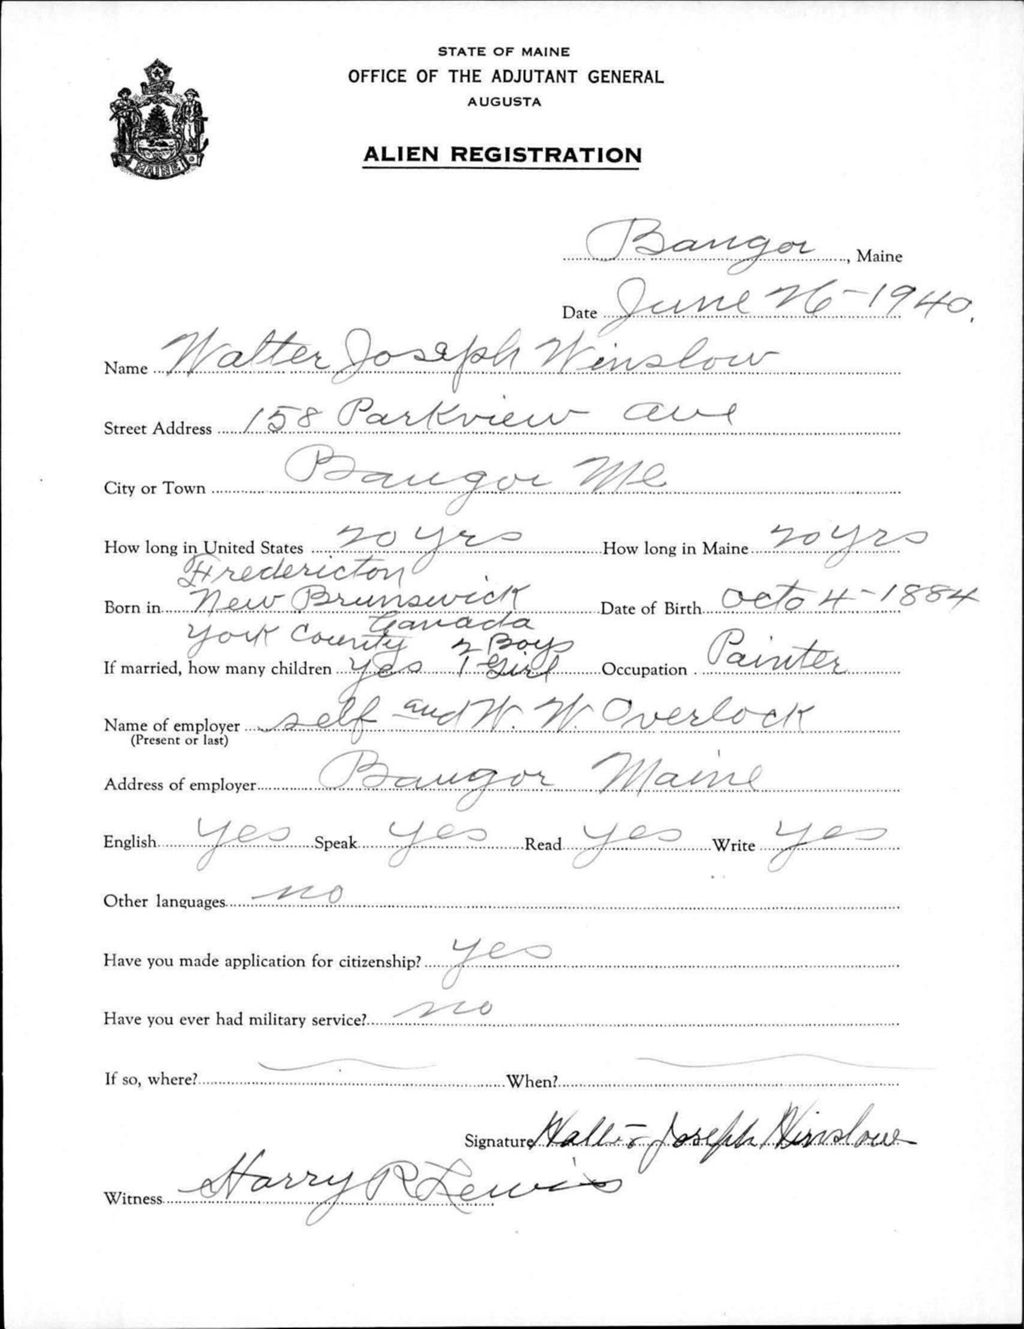 STATE OF MAINE
OFFICE OF THE ADJUTANT GENERAL
AUGUSTA
ALIEN REGISTRATION
MAINE
Bangor, Maine
Date June 26-1940.
Name Walter Joseph Winslow
Street Address 158 Parkview ave
City or Town Bangor Me
How long in United States 20 yrs How long in Maine 20 yrs
Fredericton
Born in New Brunswick Date of Birth Octo 4-1884
Canada
York County 2 Boys
If married, how many children yes 1 Girl Occupation Painter
Name of employer self and W. W. Overlock
(Present or last)
Address of employer Bangor Maine
English yes Speak yes Read yes Write yes
Other languages no
Have you made application for citizenship? yes
Have you ever had military service? no
If so, where? When?
Signature Walter Joseph Winslow
Witness Harry R Lewis